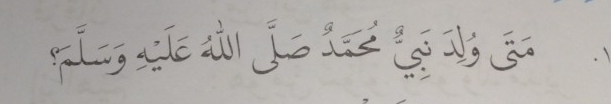 ١. مَتَى وُلِدَ نَبِيٌّ مُحَمَّدٌ صَلَّى اللهُ عَلَيْهِ وَسَلَّمَ؟